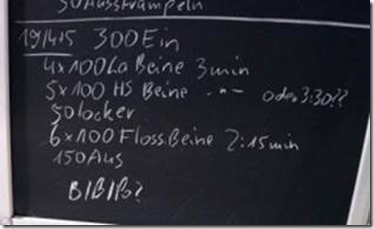 50 Ausstrampeln
19/4+5 300 Ein
4x100 La Beine 3min
5x100 HS Beine -"- oder 3:30??
50 locker
6x100 Floss.Beine 2:15min
150 Aus
B/B/Po?